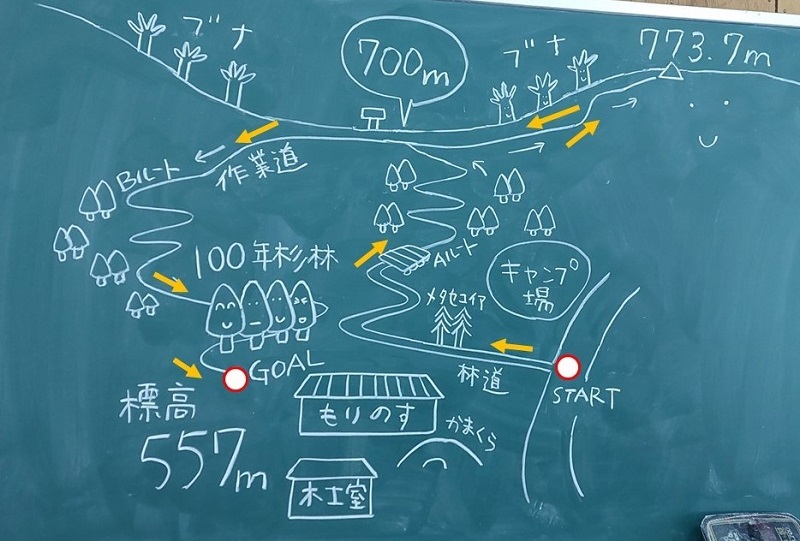 ブナ
700m
ブナ
773.7m
Bルート
作業道
100年杉林
Aルート
キャンプ
場
メタセコイア
林道
GOAL
START
標高
557m
もりのす
かまくら
木士室